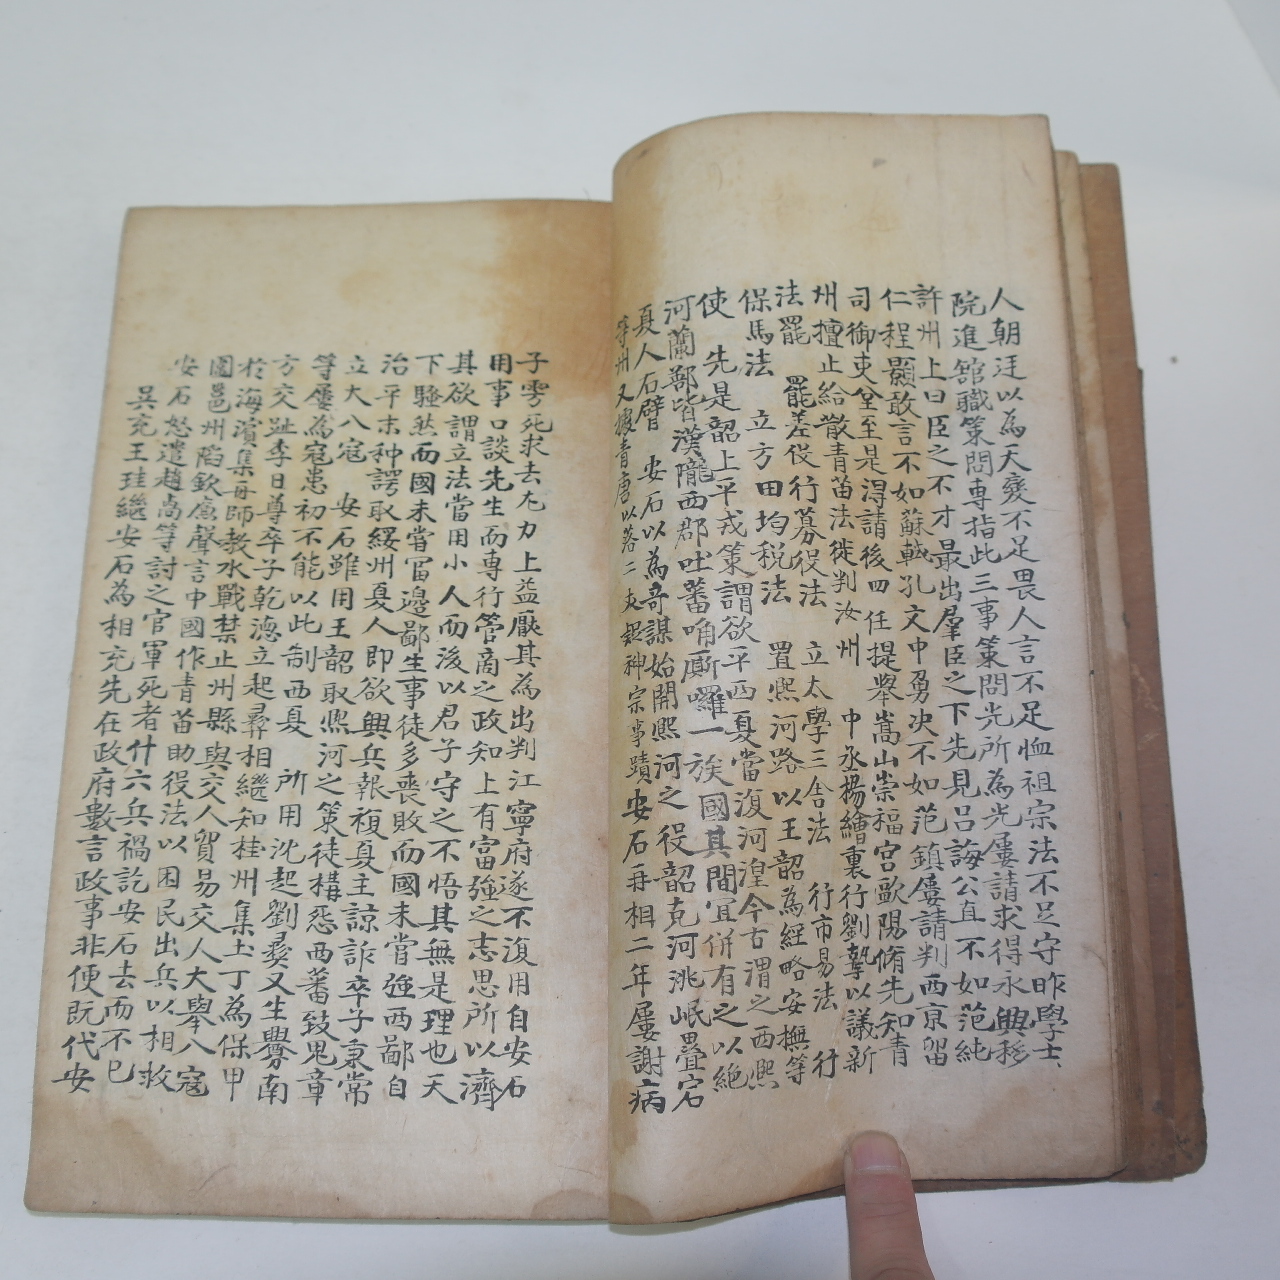 人朝廷以為天變不足畏人言不足恤祖宗法不足守昨學士
院進館職策問專指此三事策問光所為光屢請求得永興移
許州上曰臣之不才最出羣臣之下先見呂誨公直不如范純
仁程顥敢言不如蘇軾孔文中勇决不如范鎮屢請判西京留
司御史坮至是淂請後四任提舉嵩山崇福宮歐陽脩先知青
州擅止給散青苗法徙判汝州 中丞楊繪裏行劉摯以議新
法罷 罷差役行募役法 立太學三舍法 行市易法 行
保馬法 立方田均稅法 置熙河路以王韶為經略安撫等
使 先是韶上平戎策謂欲平西夏當復河湟今古渭之西熙
河蘭鄯皆漢隴西郡吐蕃唃厮囉一族國其間宜併有之以絕
夏人右臂 安石以為奇謀始開熙河之役韶克河洮岷疊宕
等州又據青唐以落二 神宗事蹟安石再相二年屢謝病
子雱死求去尤力上益厭其為出判江寧府遂不復用自安石
用事口談先生而專行管商之政知上有富強之志思所以濟
其欲謂立法當用小人而後以君子守之不悟其無是理也天
下騷然而國未嘗冨邊鄙生事徒多喪敗而國未嘗強西鄙自
治平末种諤取綏州夏人即欲興兵報複夏主諒詐卒子秉常
立大八寇 安石雖用王韶取熙河之策徒構怨西蕃致鬼章
等屢為寇患初不能以此制西夏 所用沈起劉彛又生釁南
方交趾李日尊卒子乾德立起彛相繼知桂州集土丁為保甲
於海濱集舟師教水戰禁止州縣與交人貿易交人大舉八寇
圍邕州陷欽廉聲言中國作青苗助役法以困民出兵以相救
安石怒遣趙卨等討之官軍死者什六兵禍訖安石去而不已
吳充王珪繼安石為相充先在政府數言政事非便既代安